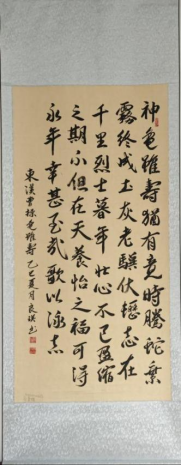 神龜雖壽猶有竟時騰蛇乘
霧終成土灰老驥伏櫪志在
千里烈士暮年壮心不已盈縮
之期不但在天養怡之福可得
永年幸甚至哉歌以咏志
東漢曹操龜雖壽 乙巳夏月良瑛书